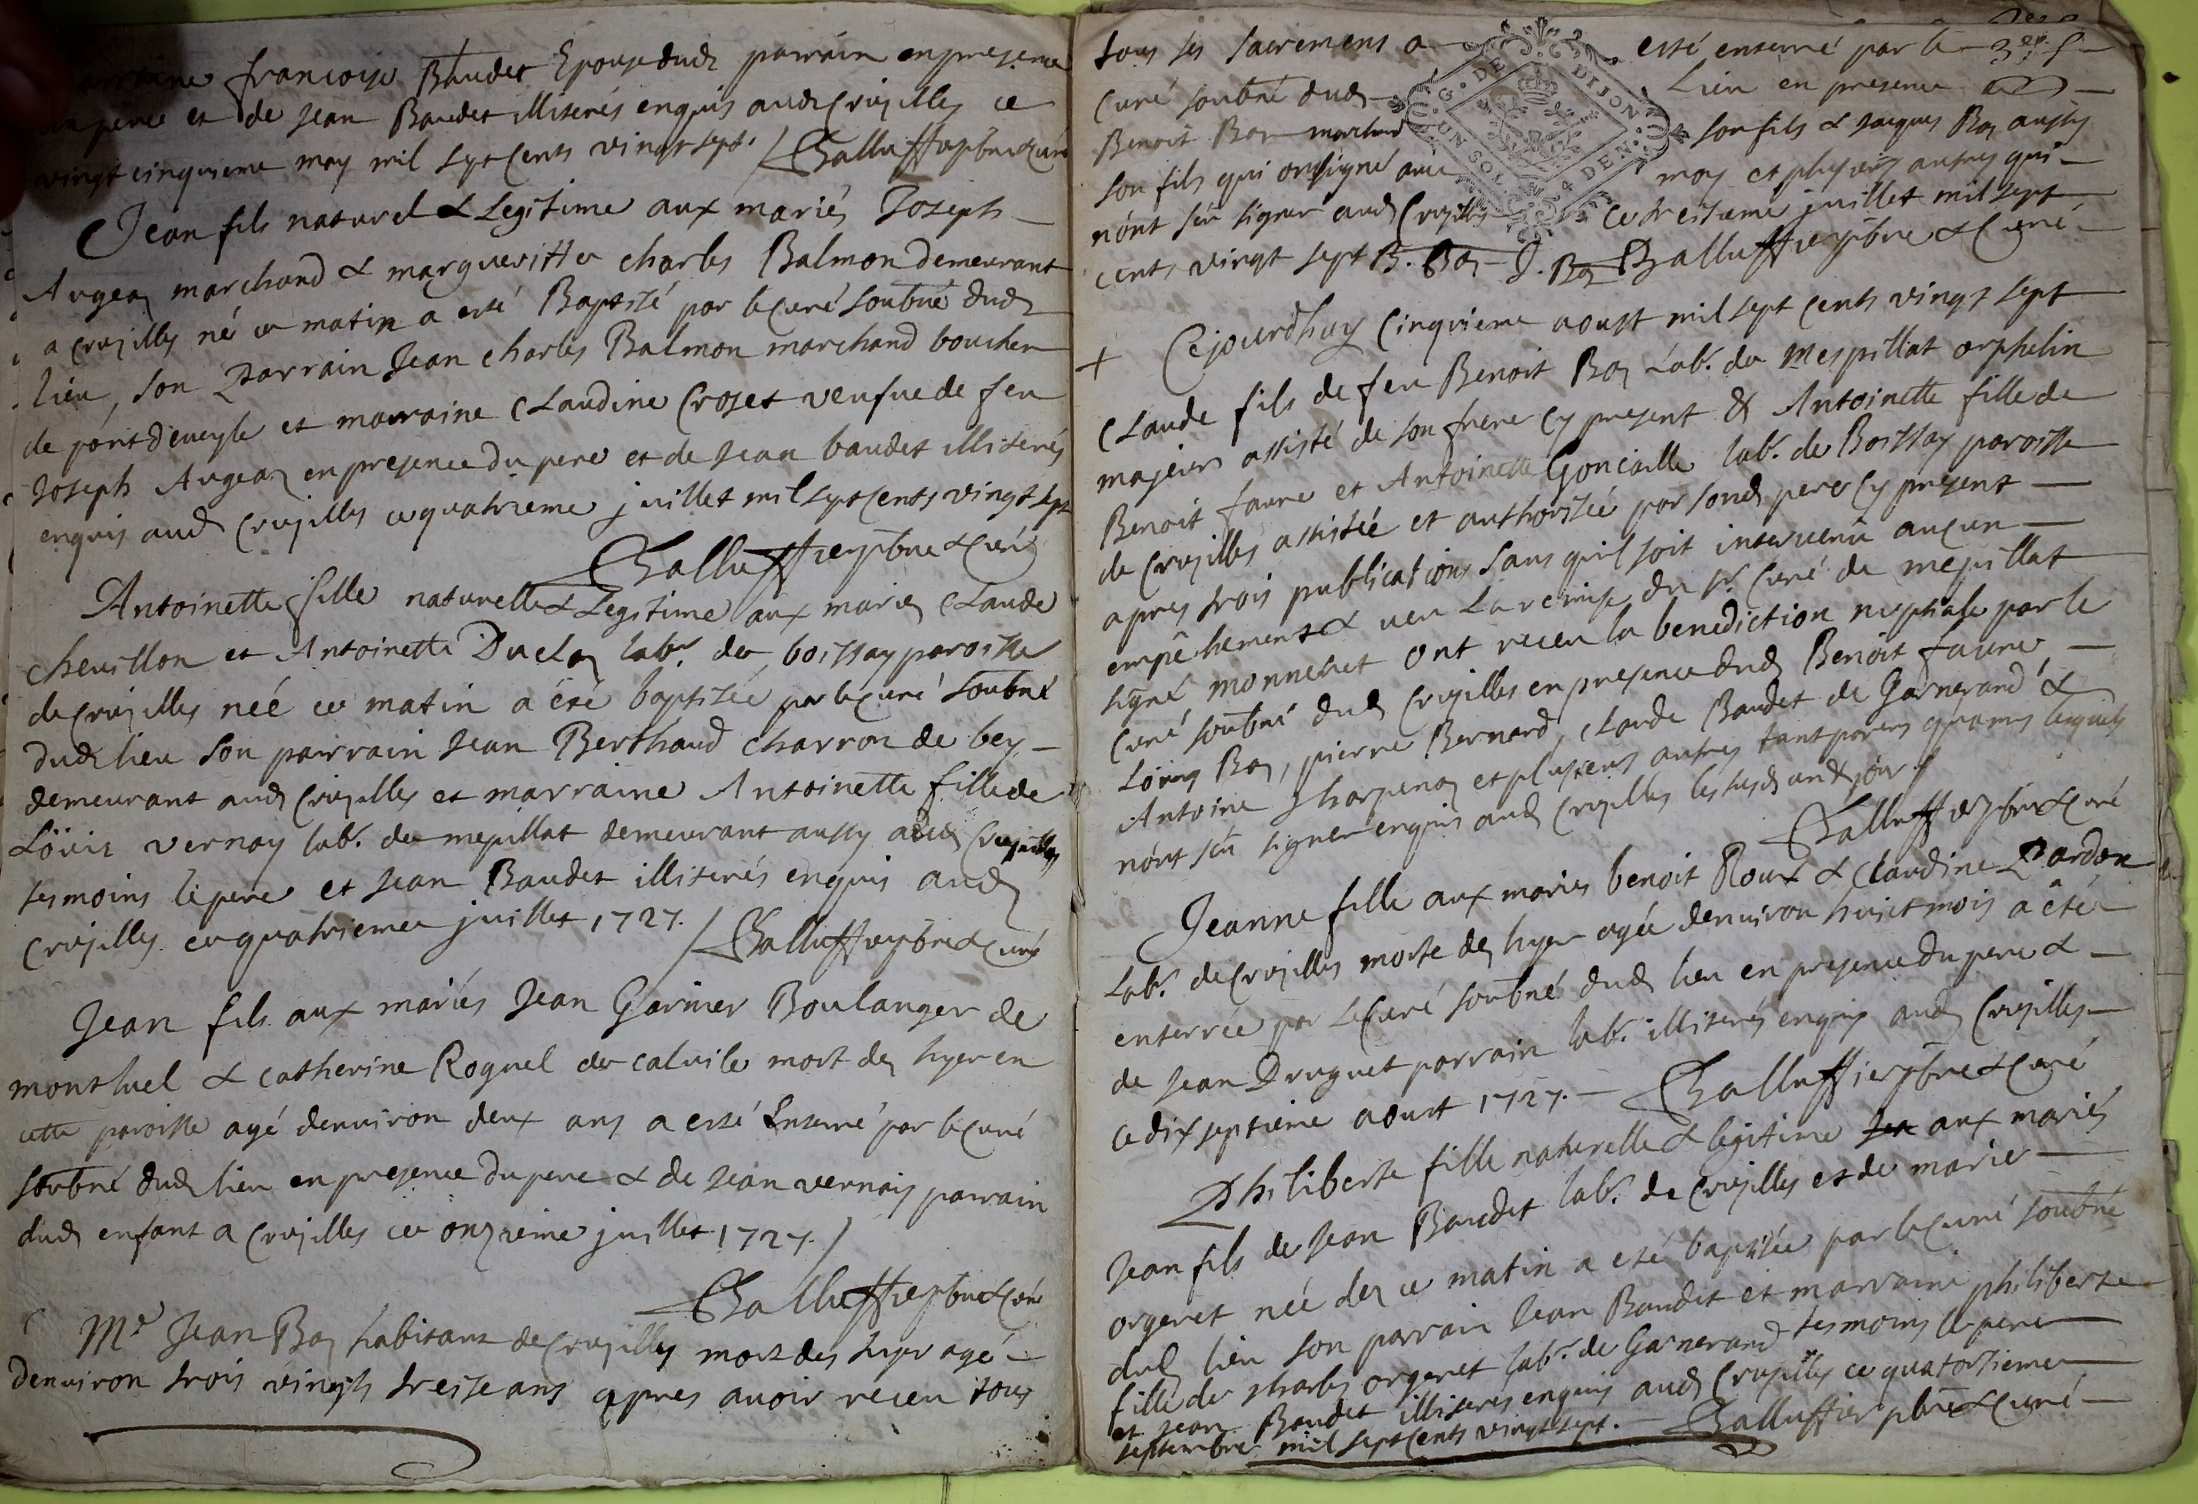 francoise Baudet Epouse dud parrain en presence
du pere et de Jean Baudet illiterés enquis aud Crusilles ce
vingt cinquieme may mil sept Cents vingt sept. / Balluffier pbre & curé
Jean fils naturel & Legitime aux mariés Joseph
Augeas marchand & margueritte charles Balmon demeurant
a crusilles né ce matin a esté Baptisé par le Curé soubné dud
lieu, son Parrain Jean charles Balmon marchand boucher
de pont deveyle et marraine Claudine Croset veufue de feu
Joseph Augeas en presence du pere et de Jean baudet illiterés
enquis aud Crusilles ce quatrieme juillet mil sept Cents vingt sept
Balluffier pbre & curé
Antoinette fille naturelle & Legitime aux mariés Claude
chevillon et Antoinette Duclos labr. de boissay paroisse
de Crusilles née ce matin a été baptisée par le Curé soubné
dud lieu son parrain Jean Berthaud charron de bey
demeurant aud Crusilles et marraine Antoinette fille de
Löüis vernay labr. de mepillat demeurant aussy aud Crusilles
tesmoins le pere et Jean Baudet illiterés enquis aud
Crusilles ce quatrieme juillet 1727. / Balluffier pbre & curé
Jean fils aux mariés Jean Garnier Boulanger de
montluel & catherine Roguel de caluile mort des hyer en
cette paroisse agé denviron deux ans a esté Enterré par le Curé
soubné dud lieu en presence du pere & de Jean vernais parrain
dud enfant a Crusilles ce onzieme juillet 1727. /
Balluffier pbre & Curé
Me Jean Bas habitant de Crusilles mort des hyer agé
denviron trois vingts treise ans apres avoir receu tous
tous ses sacremens a esté enterré par le
Curé soubné dud Lieu en presence
Benoit Bas marchand son fils & Jacques Bas aussy
son fils qui ont signé avec moy et plusieurs autres qui
nont sçu signer aud Crusilles ce treisieme juillet mil sept
cents vingt sept B. Bas J. Bas Balluffier pbre & Curé
G. DE DIJON
UN SOL 4 DEN.
+ Cejourdhuy Cinquieme aoust mil sept cents vingt sept
Claude fils de feu Benoit Bas Labr. de Mespillat orphelin
majeur assisté de son frere cy present & Antoinette fille de
Benoit faure et Antoinette Goncaille labr. de Boissay paroisse
de Crusilles assistée et authorisée par sond pere cy present
apres trois publications sans quil soit intervenü aucun
empêchement & veu La remise du sr. Curé de mepillat
signé monneret ont receu la benediction nuptiale par le
Curé soubné dud Crusilles en presence dud Benoit faure
Löüis Bas, pierre Bernard, claude Baudet de Garnerand &
Antoine Charpenas et plusieurs autres tant parens quamis lequels
nont sçu signer enquis aud Crusilles les susd an & jour. /
Balluffier pbre & Curé
Jeanne fille aux mariés benoit Roux & Claudine Pardon
Labr. de Crusilles morte des hyer agée denviron huict mois a été
enterrée par Le Curé soubné dud lieu en presence du pere &
de Jean Druguet parrain labr. illiterés enquis aud Crusilles
ce dix septieme aoust 1727. Balluffier pbre & Curé
Philiberte fille naturelle & legitime aux mariés
Jean fils de Jean Baudet labr. de Crusilles et de marie
orgeret née des ce matin a été baptisée par le Curé soubné
dud lieu son parrain Jean Baudet et marraine philiberte
fille de charles orgeret labr. de Garnerand tesmoins le pere
et Jean Baudet illiterés enquis aud Crusilles ce quatorsieme
septembre mil sept Cents vingt sept. Balluffier pbre & Curé